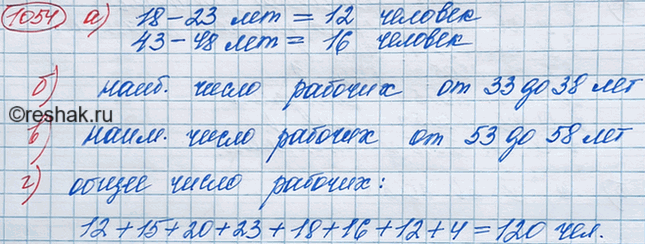 1054 а) 18-23 лет = 12 человек
43-48 лет = 16 человек
б) наиб. число рабочих от 33 до 38 лет
©reshak.ru
в) наим. число рабочих от 53 до 58 лет
г) общее число рабочих:
12+15+20+23+18+16+12+4=120 чел.